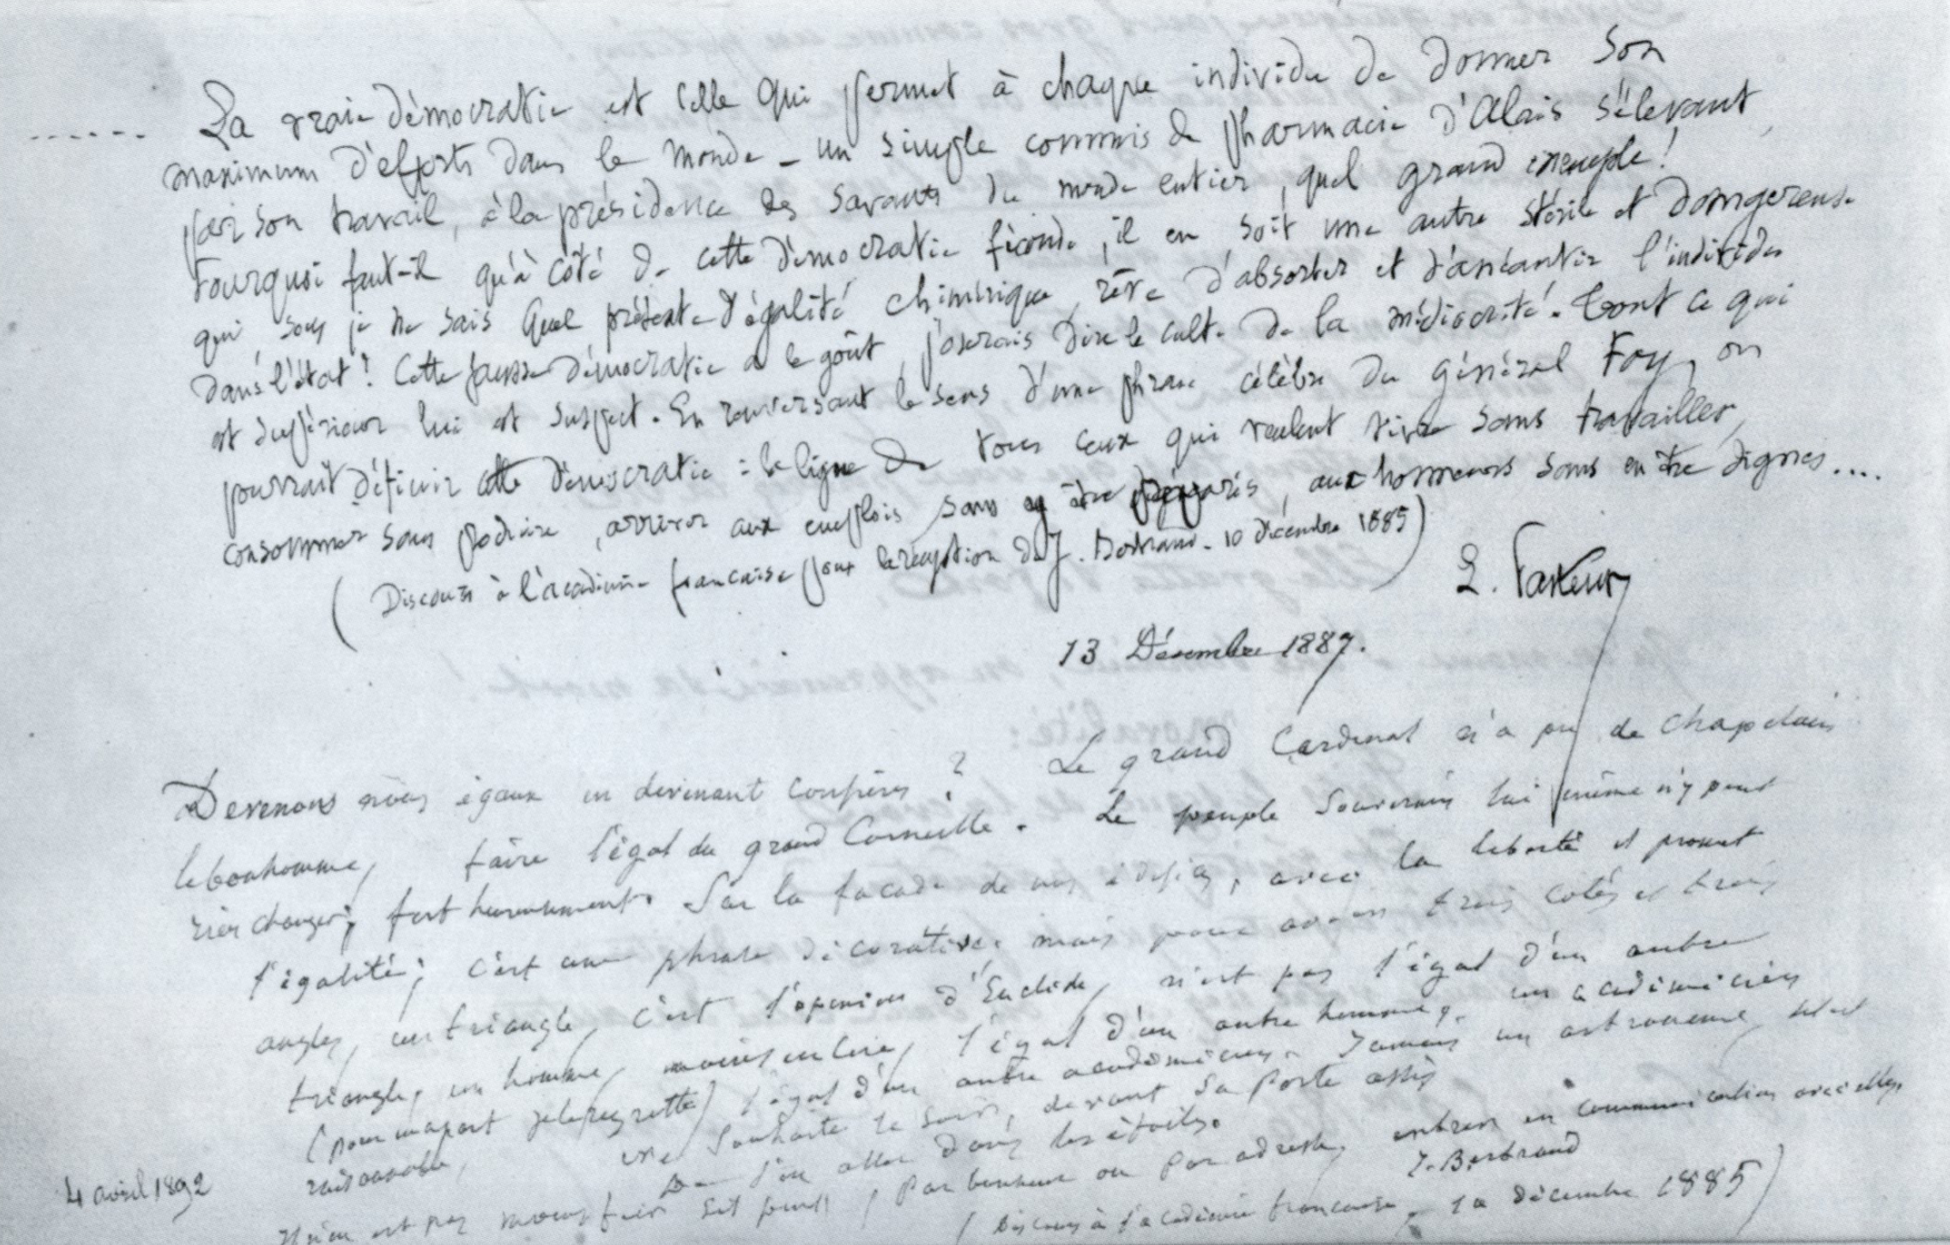 ...... La vraie démocratie est celle qui permet à chaque individu de donner son
maximum d'efforts dans le monde – un simple commis de pharmacie d'Alais s'élevant,
par son travail, à la présidence des savants du monde entier, quel grand exemple!
Pourquoi faut-il qu'à côté de cette démocratie féconde, il en soit une autre stérile et dangereuse
qui, sous je ne sais quel prétexte d'égalité chimérique, rêve d'absorber et d'anéantir l'individu
dans l'état! Cette fausse démocratie a le goût, j'oserais dire le culte de la médiocrité. Tout ce qui
est supérieur lui est suspect. En renversant le sens d'une phrase célèbre du général Foy, on
pourrait définir cette démocratie : la ligue de tous ceux qui veulent vivre sans travailler,
consommer sans produire, arriver aux emplois sans y être préparés, aux honneurs sans en être dignes....
(Discours à l'académie française pour la réception de J. Bertrand - 10 décembre 1885)
L. Pasteur
13 Décembre 1887.
Devenons nous égaux en devenant confrères? Le grand Cardinal n'a pu de Chapelain
le bonhomme, faire l'égal du grand Corneille. Le peuple souverain lui même n'y peut
rien changer, fort heureusement. Sur la façade de nos édifices, avec la liberté il promet
l'égalité; c'est une phrase décorative. mais pour avoir trois côtés et trois
angles, un triangle, c'est l'opinion d'Euclide, n'est pas l'égal d'un autre
triangle, un homme, l'égal d'un autre homme, un académicien
(pour ma part je le regrette) l'égal d'un autre académicien. Jamais un astronome,
raisonnable, ne souhaite le soir, devant sa porte assis
De s'en aller dans les étoiles.
Il n'en est pas moins fier s'il peut, par bonheur ou par adresse, entrer en communication avec elles.
J. Bertrand
4 avril 1892
(Discours à l'académie française, 10 décembre 1885)